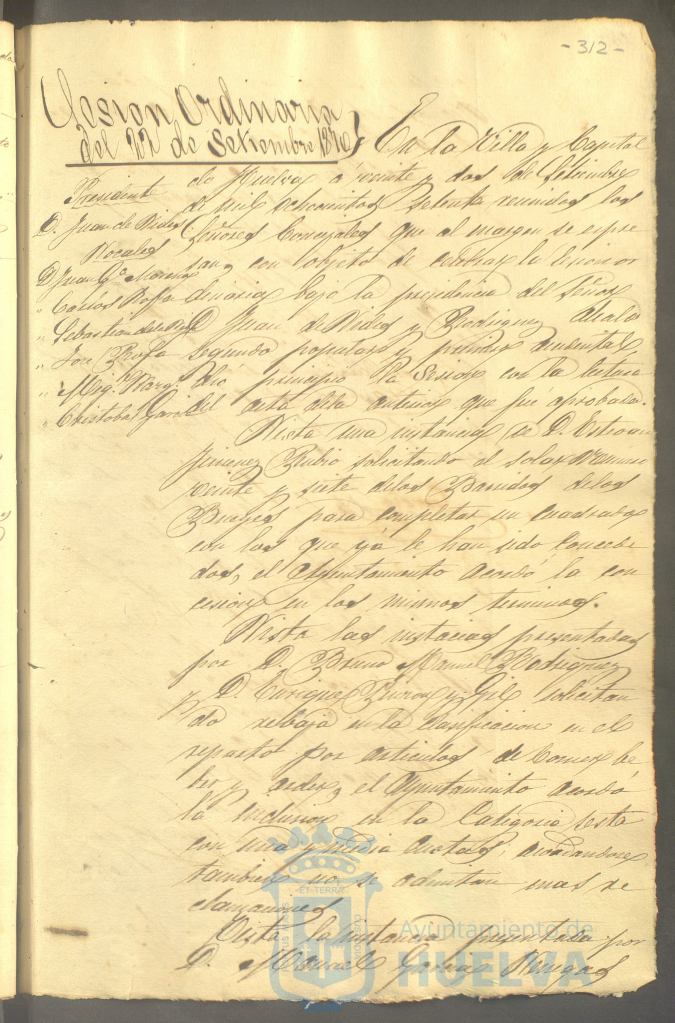 - 312 -
Sesion Ordinaria
del 22 de Setiembre 1870
Presidente
D. Juan de Vides
Vocales
D. Juan Ga. Moreno
" Carlos Rofa
" Sebastian de la
" José
" Mig.
" Cristobal Garcia
En la Villa y Capital
de Huelva á veinte y dos de Setiembre
de mil ochocientos setenta reunidos los
Señores Concejales que al margen se expre
san, con objeto de celebrar la sesion or
dinaria bajo la presidencia del Señor
D. Juan de Vides y Rodriguez Alcalde
segundo popular y presidente accidental
dio principio la Sesion con la lectura
del acta dela anterior que fué aprobada.
Vista una instancia de D. Estevan
Jimenez Rubio solicitando el solar Numero
veinte y siete delos Barridos delos
Bueyes para completar un cuadrado
con los que ya le han sido concedi
dos, el Ayuntamiento acordó la con
cesion en los mismos terminos.
Vista las instacias presentadas
por D. Bruno Manuel Rodriguez
y D. Enrique y Gil solicitan
do rebaja en la clasificacion en el
reparto por articulos de Comer be
ber y arder, el Ayuntamiento acordó
la inclusion en la Categoria sesta
con una y media cuotas; acordandose
tambien no se admitan mas re
clamaciones
Vista la instancia presentada por
D. Manuel Garcia Vargas
Ayuntamiento de
HUELVA